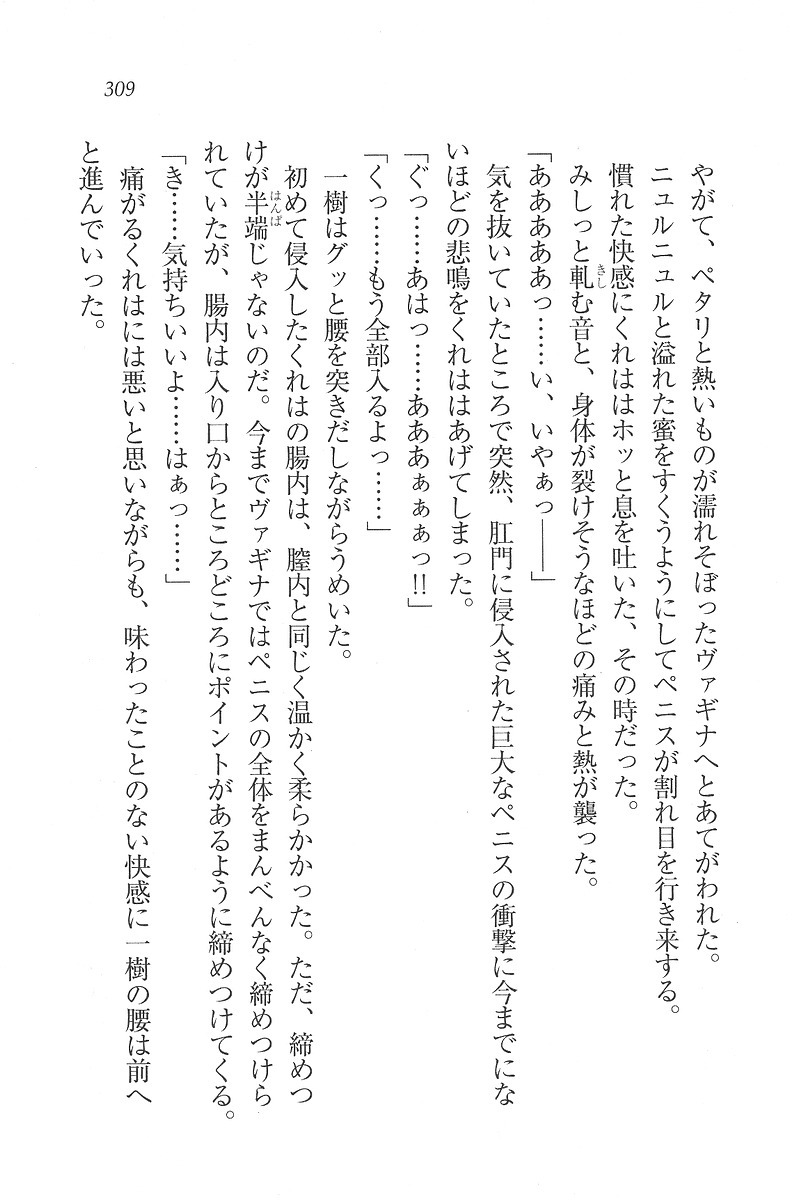 309
やがて、ペタリと熱いものが濡れそぼったヴァギナへとあてがわれた。
ニュルニュルと溢れた蜜をすくうようにしてペニスが割れ目を行き来する。
慣れた快感にくれははホッと息を吐いた、その時だった。
みしっと軋きしむ音と、身体が裂けそうなほどの痛みと熱が襲った。
「あああああっ……い、いやぁっ――」
気を抜いていたところで突然、肛門に侵入された巨大なペニスの衝撃に今までにな
いほどの悲鳴をくれははあげてしまった。
「ぐっ……あはっ……あああぁぁぁっ!!」
「くっ……もう全部入るよっ……」
一樹はグッと腰を突きだしながらうめいた。
初めて侵入したくれはの腸内は、膣内と同じく温かく柔らかかった。ただ、締めつ
けが半端はんぱじゃないのだ。今までヴァギナではペニスの全体をまんべんなく締めつけら
れていたが、腸内は入り口からところどころにポイントがあるように締めつけてくる。
「き……気持ちいいよ……はぁっ……」
痛がるくれはには悪いと思いながらも、味わったことのない快感に一樹の腰は前へ
と進んでいった。